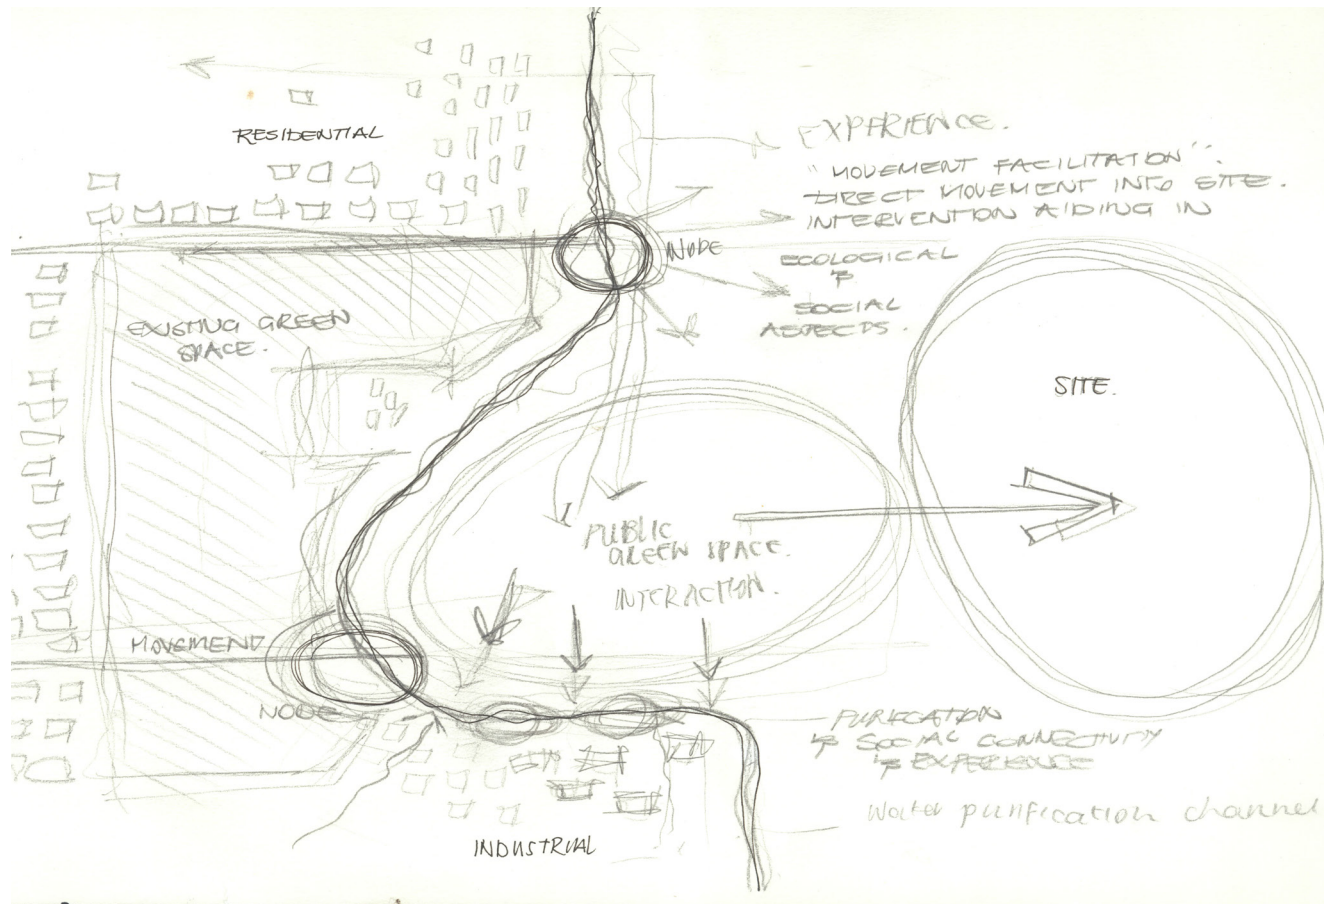 RESIDENTIAL
EXPERIENCE.
"MOVEMENT FACILITATION".
DIRECT MOVEMENT INTO SITE.
INTERVENTION AIDING IN
ECOLOGICAL
&
SOCIAL
ASPECTS.
NODE
EXISTING GREEN
SPACE.
SITE.
PUBLIC
GREEN SPACE.
INTERACTION.
MOVEMENT
NODE
PURIFICATION
& SOCIAL CONNECTIVITY
& EXPERIENCE
Water purification channel
INDUSTRIAL